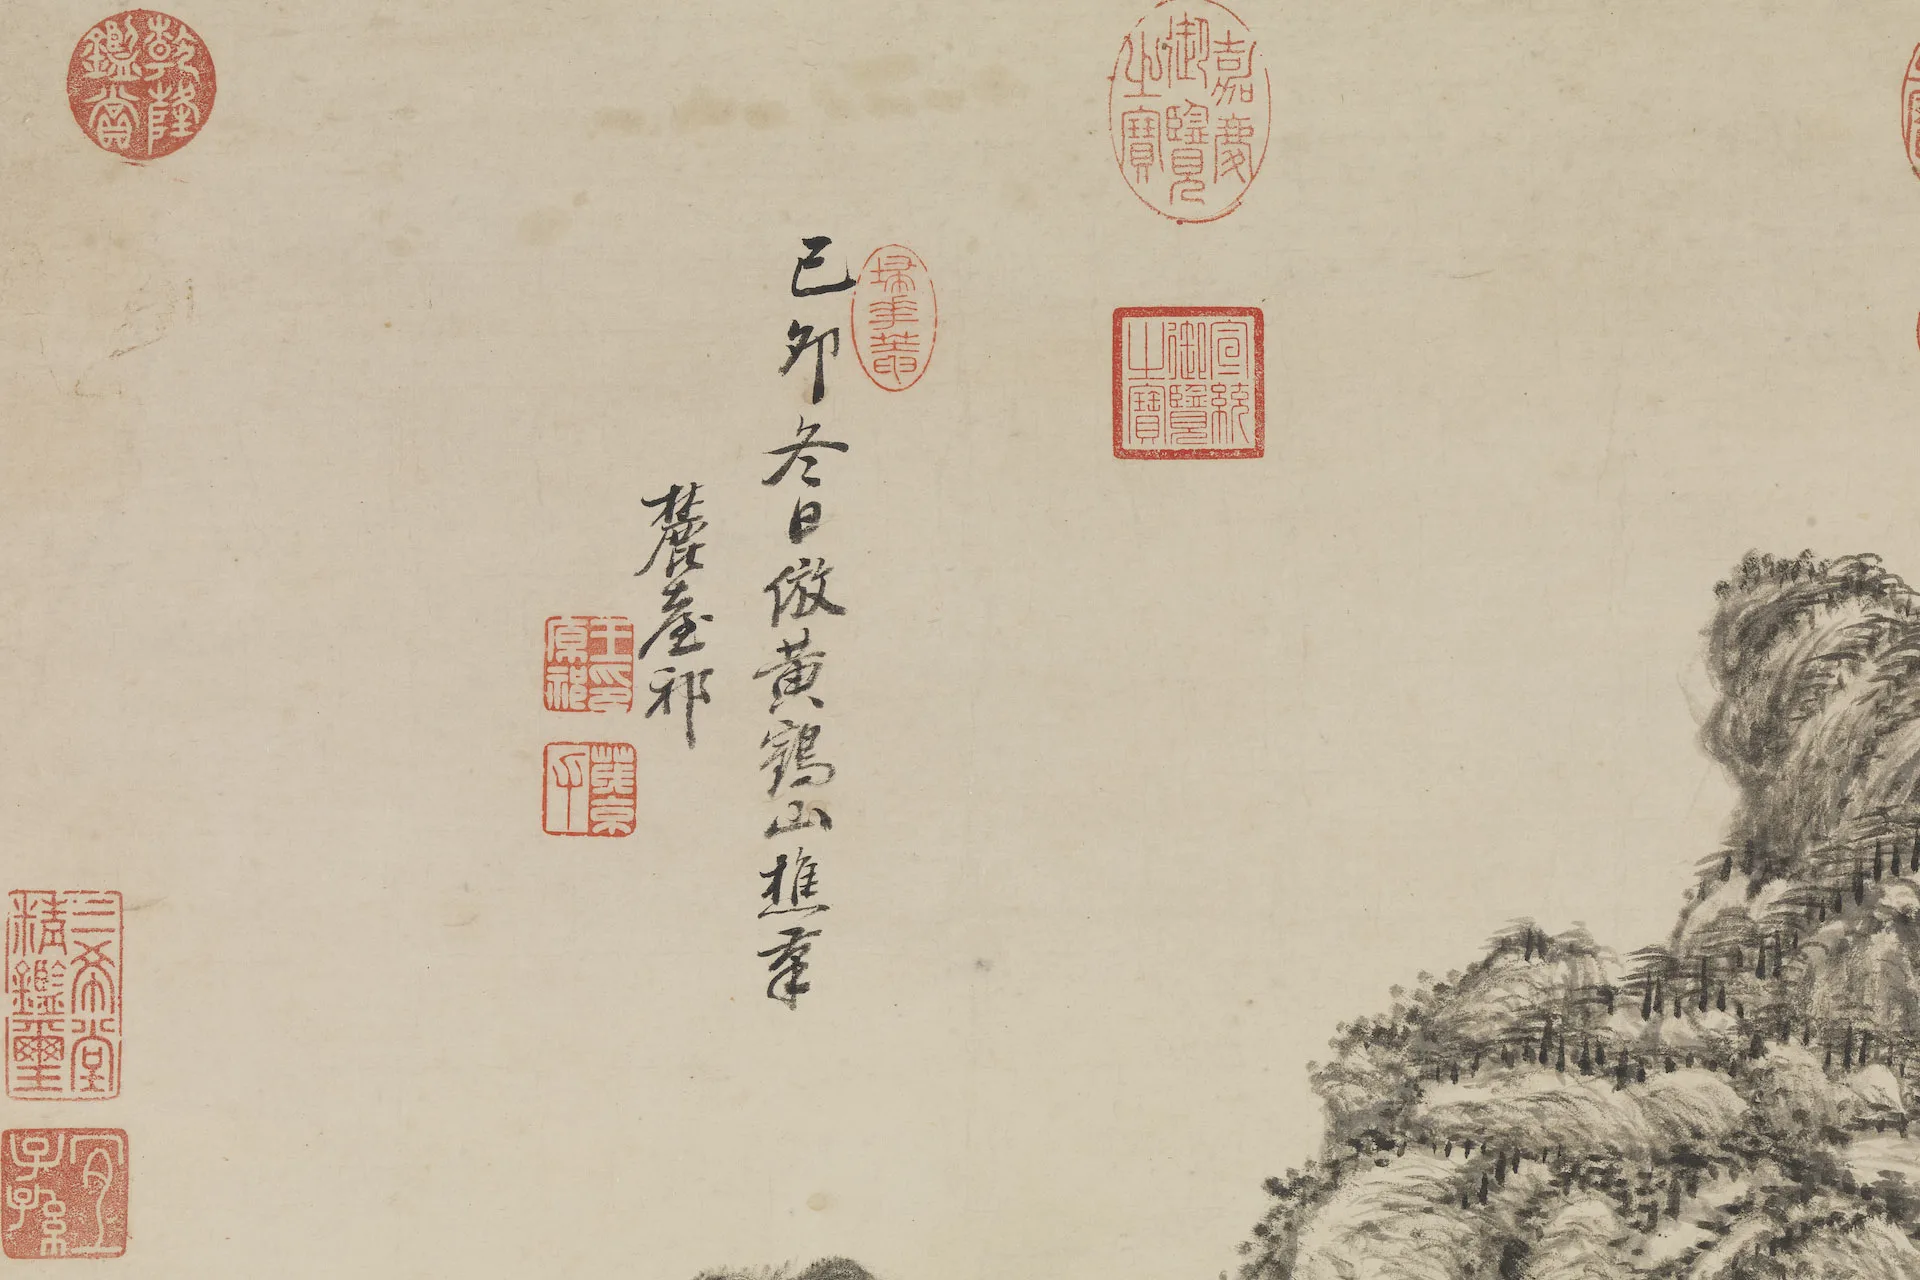 嘉慶御覽之寶
宣統御覽之寶
掃華菴
己卯冬日倣黃鶴山樵筆
麓臺祁
王原祁印
茂京
乾隆鑑賞
三希堂精鑑璽
宜子孫